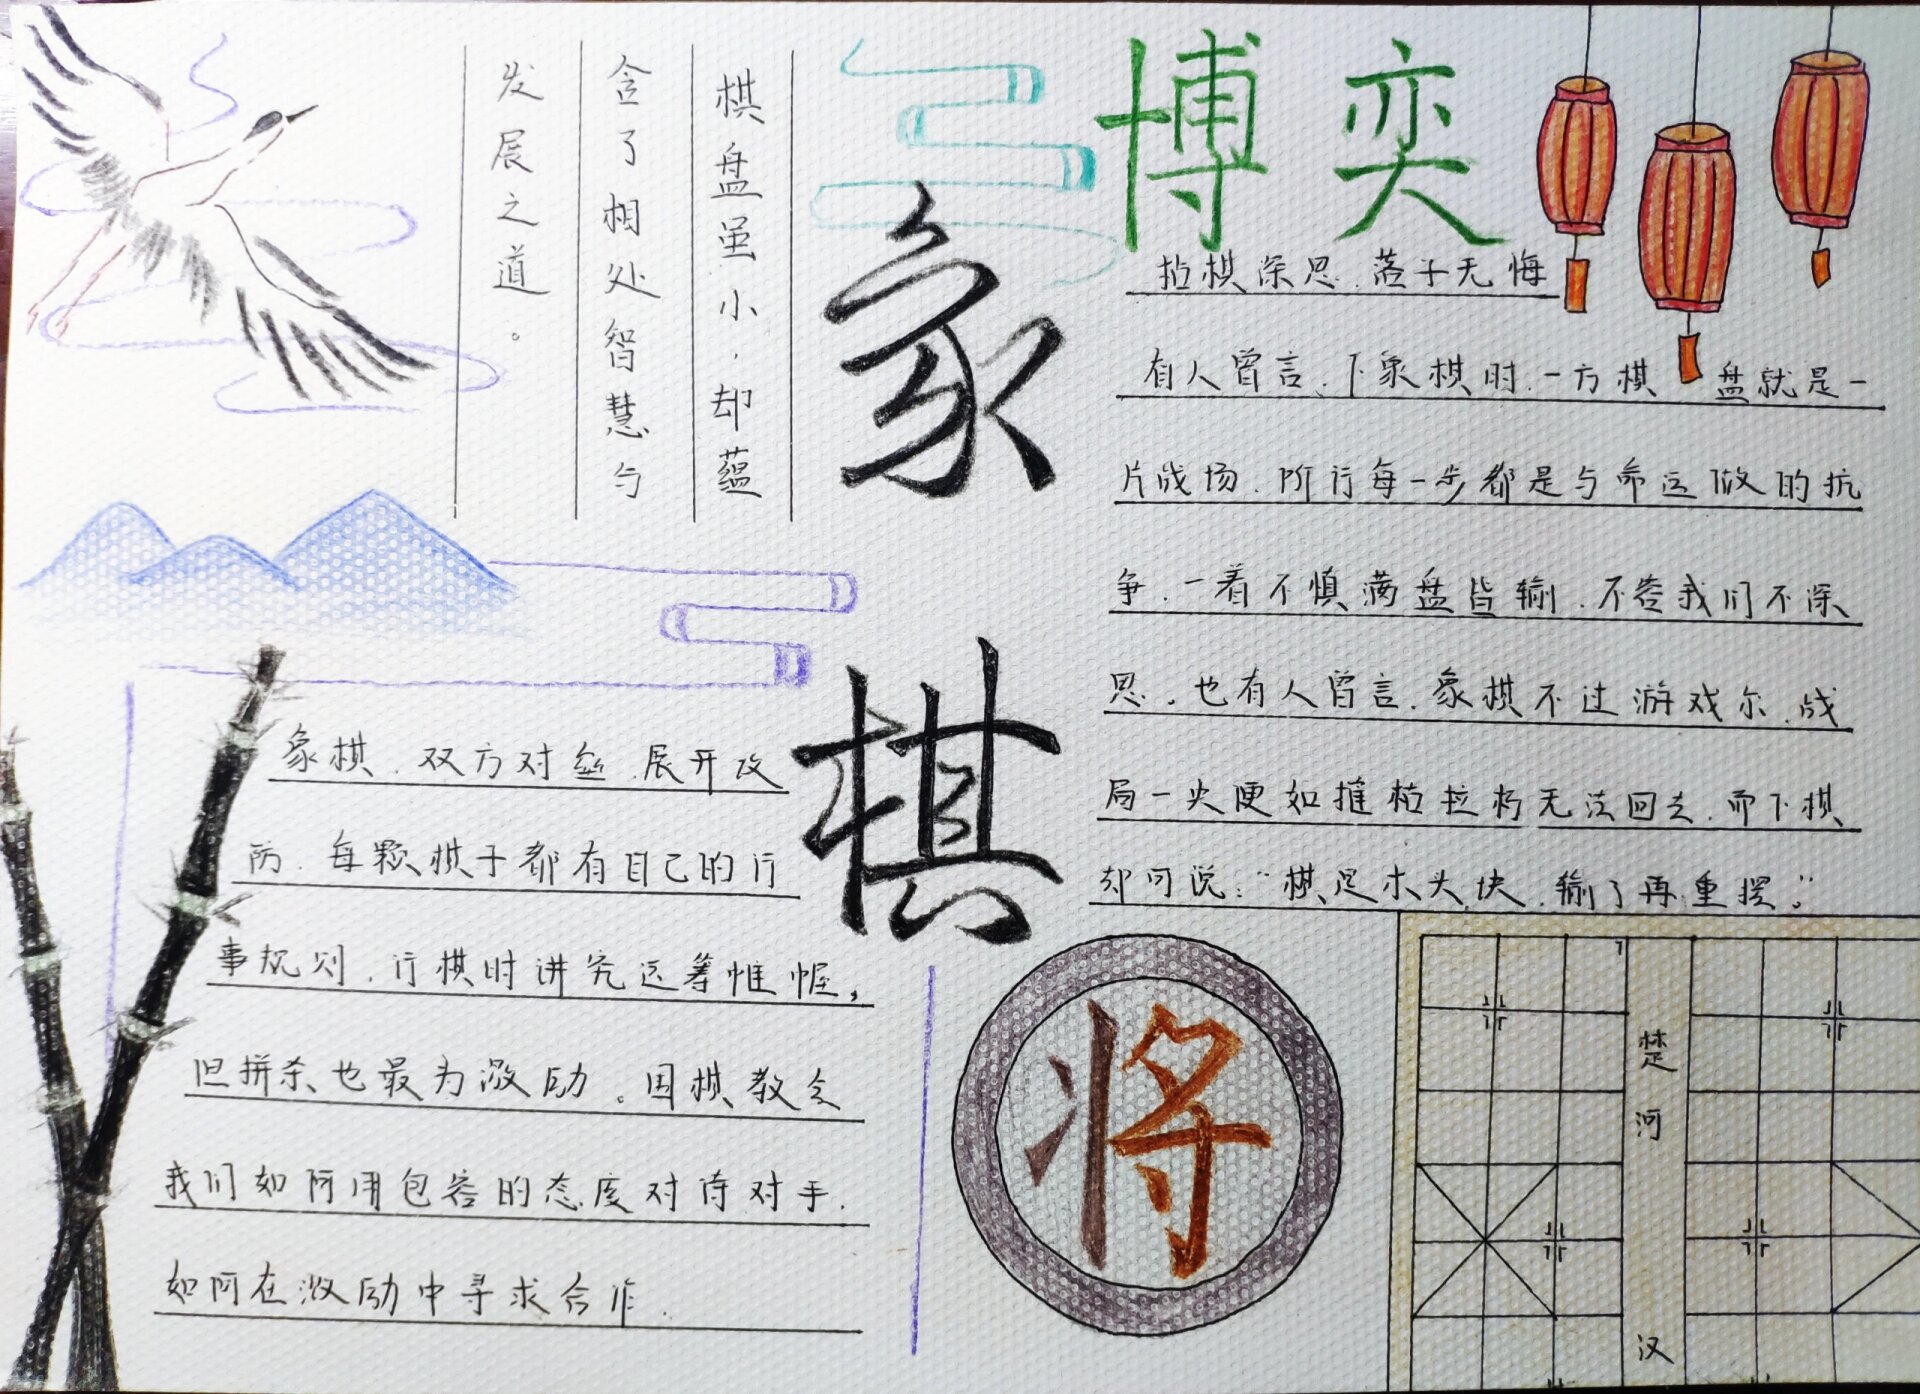 博奕
象棋
棋盘虽小,却蕴
含了相处智慧与
发展之道。
拈棋深思,落子无悔
有人曾言,下象棋时,一方棋盘就是一
片战场,所行每一步都是与命运做的抗
争,一着不慎满盘皆输,不容我们不深
思。也有人曾言,象棋不过游戏尔,战
局一失便如摧枯拉朽无法回去,而下棋
却可说:“棋是木头块,输了再重摆。”
象棋,双方对垒,展开攻
防,每颗棋子都有自己的行
事规则,行棋时讲究运筹帷幄,
但拼杀也最为激励。围棋教会
我们如何用包容的态度对待对手,
如何在激励中寻求合作.
将
楚河
汉